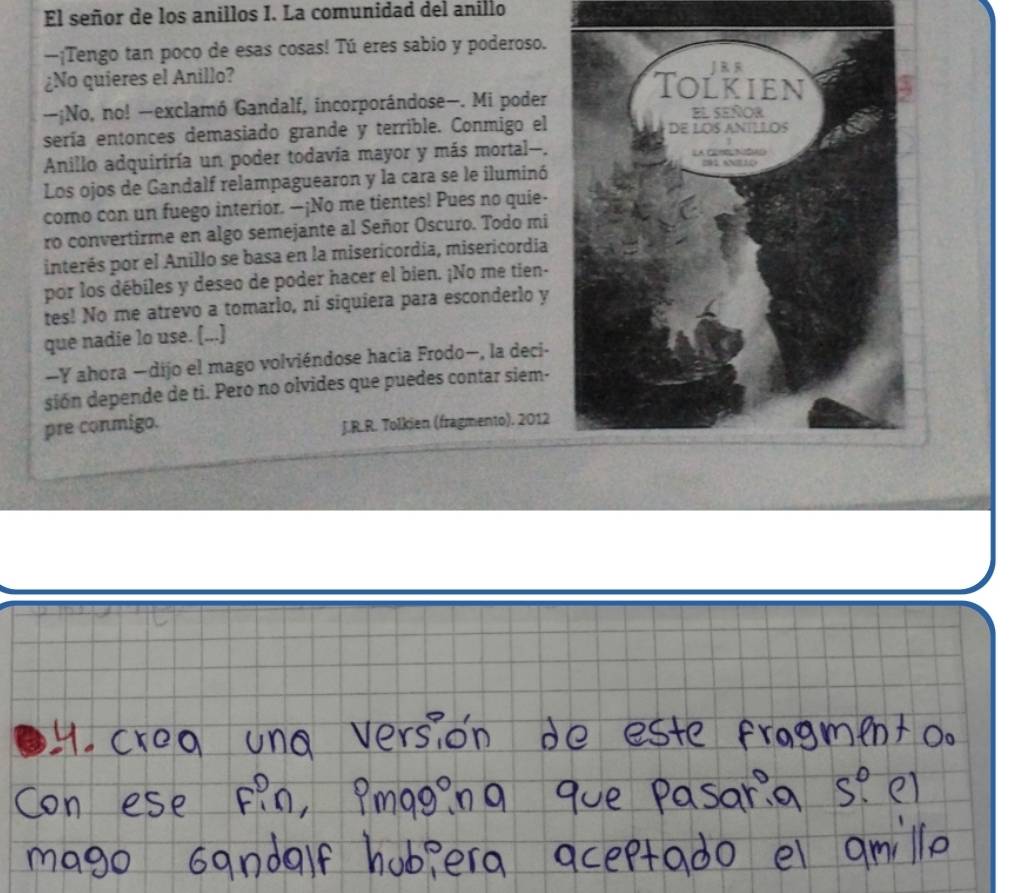 El señor de los anillos I. La comunidad del anillo
—¡Tengo tan poco de esas cosas! Tú eres sabio y poderoso.
¿No quieres el Anillo?
—¡No, no! —exclamó Gandalf, incorporándose—. Mi poder
sería entonces demasiado grande y terrible. Conmigo el
Anillo adquiriría un poder todavía mayor y más mortal—.
Los ojos de Gandalf relampaguearon y la cara se le iluminó
como con un fuego interior. —¡No me tientes! Pues no quie-
ro convertirme en algo semejante al Señor Oscuro. Todo mi
interés por el Anillo se basa en la misericordia, misericordia
por los débiles y deseo de poder hacer el bien. ¡No me tien-
tes! No me atrevo a tomarlo, ni siquiera para esconderlo y
que nadie lo use. [...]
—Y ahora —dijo el mago volviéndose hacia Frodo—, la deci-
sión depende de ti. Pero no olvides que puedes contar siem-
pre conmigo.
J.R.R. Tolkien (fragmento). 2012
J R R
TOLKIEN
EL SEÑOR
DE LOS ANILLOS
LA COMUNIDAD
DEL ANILLO
4. crea una versión de este fragmento.
Con ese fin, imagina que pasaria si el
mago Gandalf hubiera aceptado el amillo